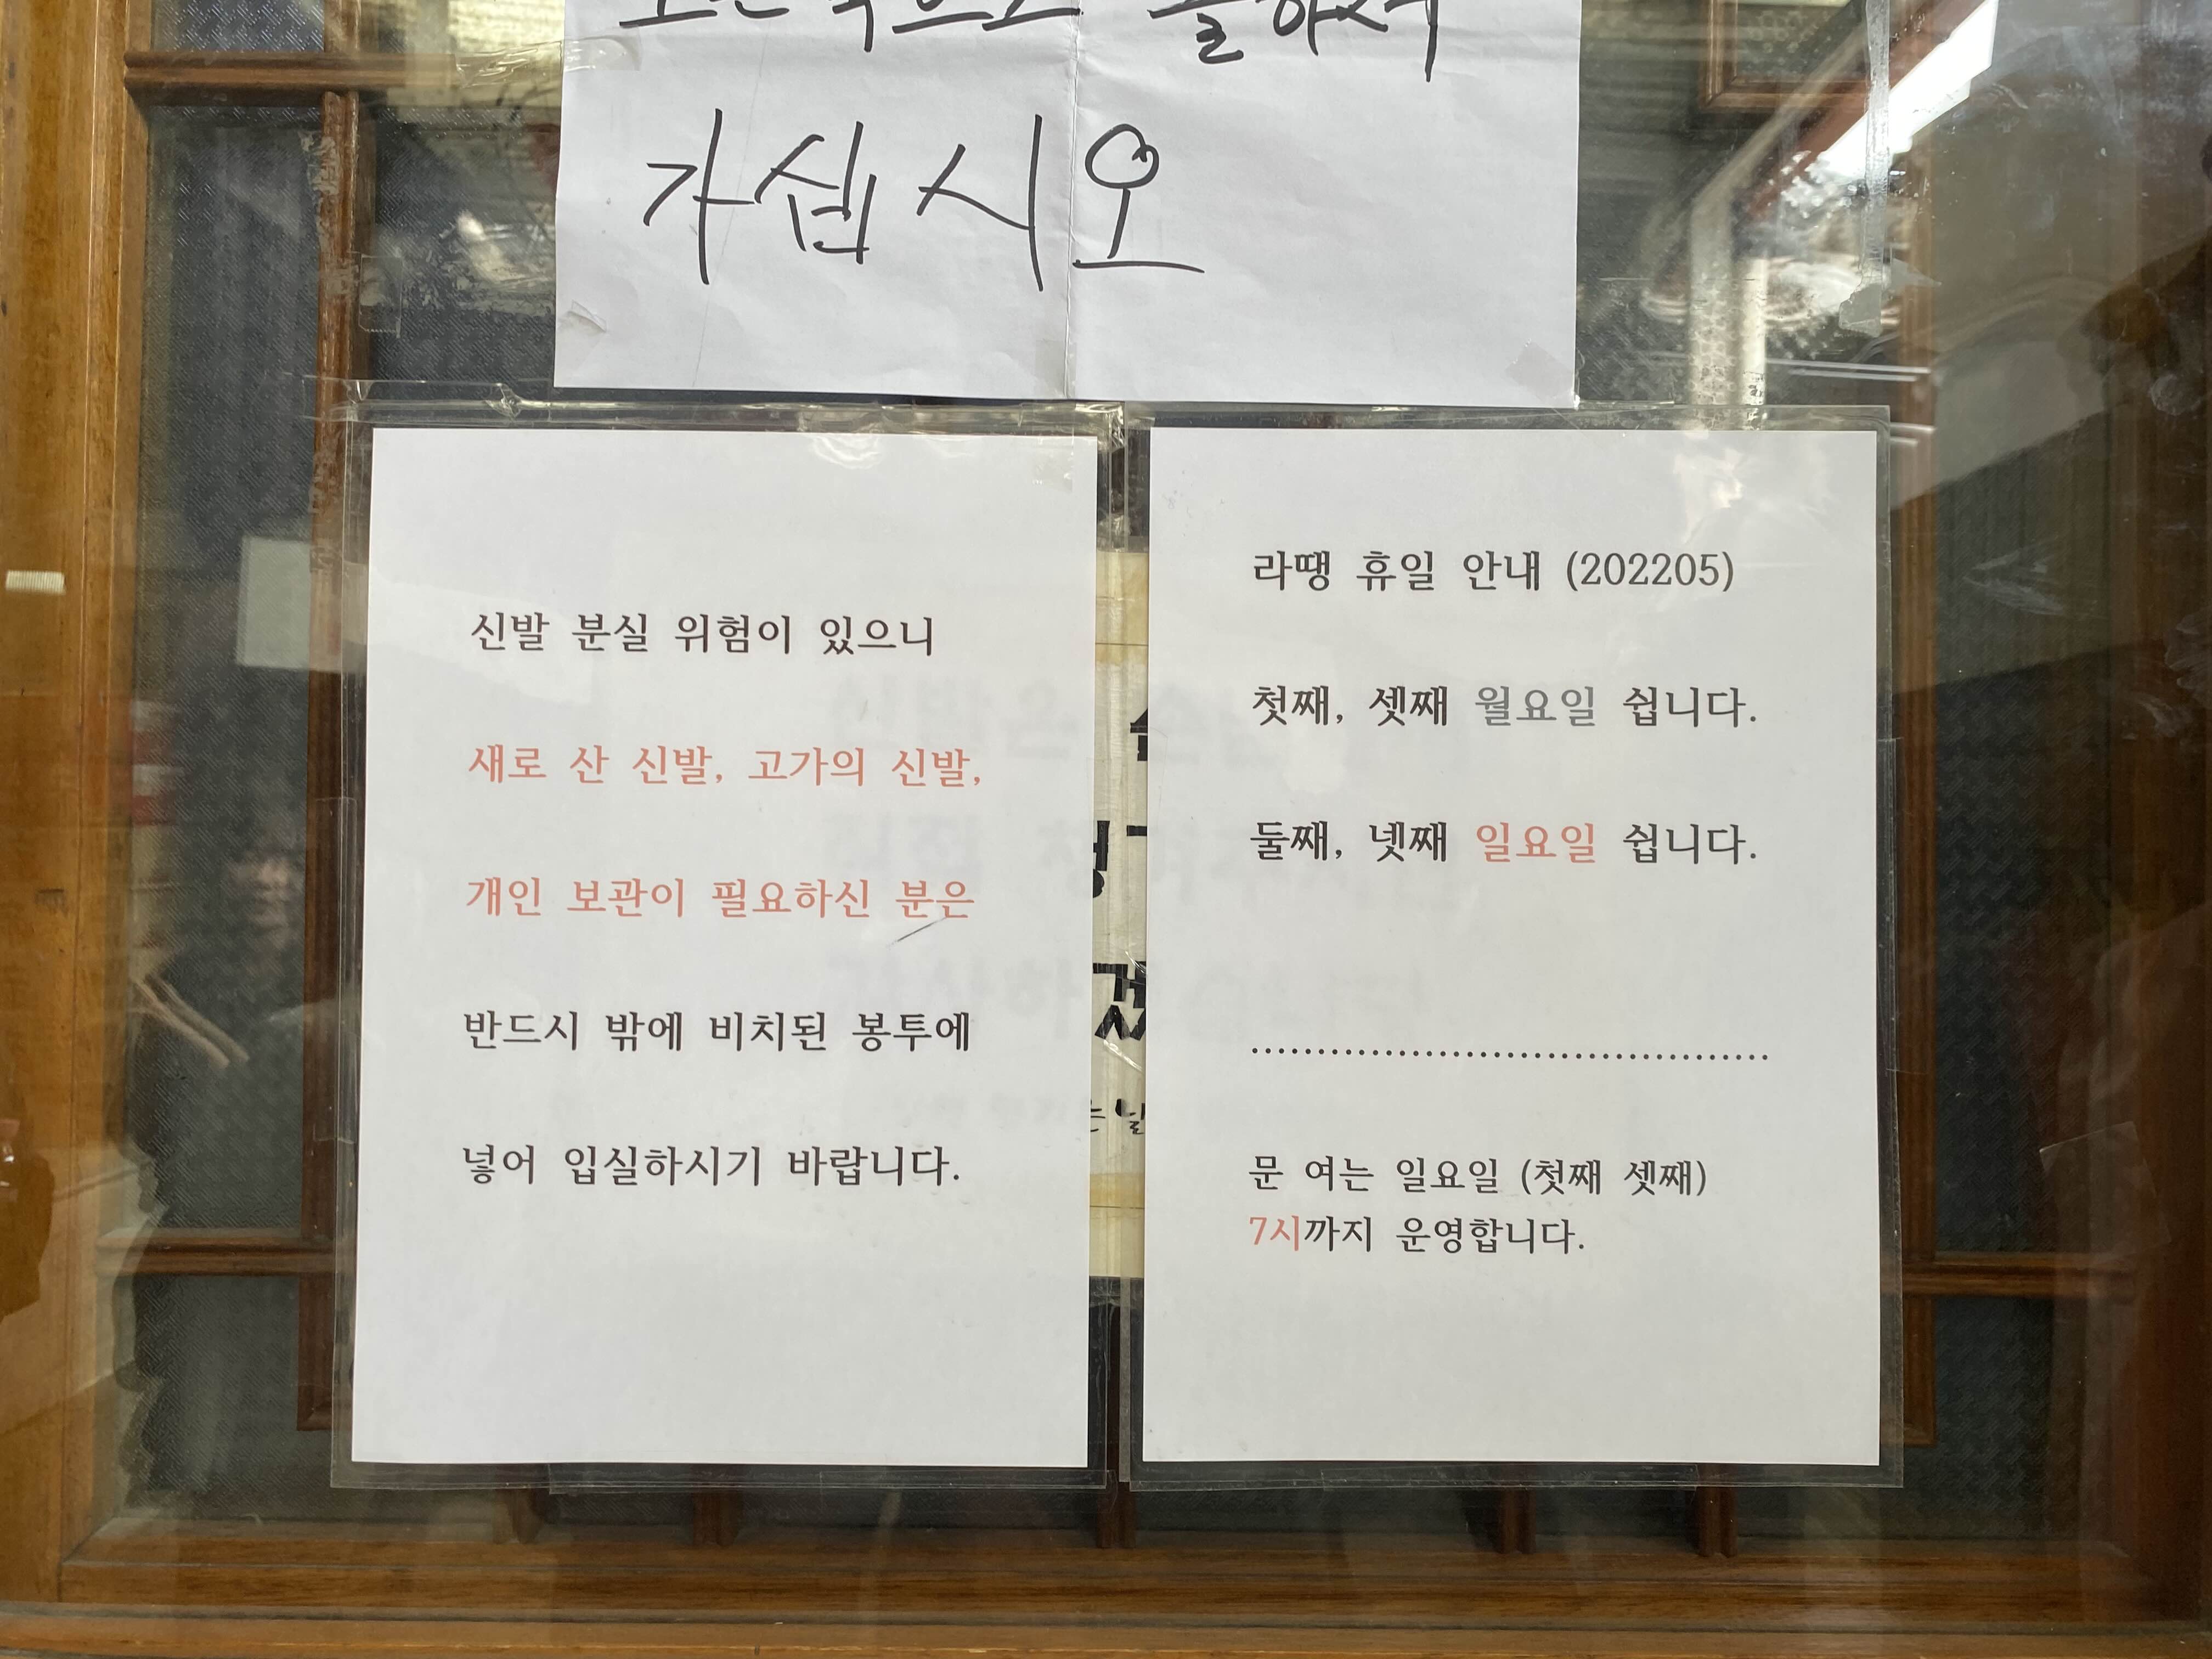 가십시오
신발 분실 위험이 있으니
새로 산 신발, 고가의 신발,
개인 보관이 필요하신 분은
반드시 밖에 비치된 봉투에
넣어 입실하시기 바랍니다.
라땡 휴일 안내 (202205)
첫째, 셋째 월요일 쉽니다.
둘째, 넷째 일요일 쉽니다.
........................................
문 여는 일요일 (첫째 셋째)
7시까지 운영합니다.